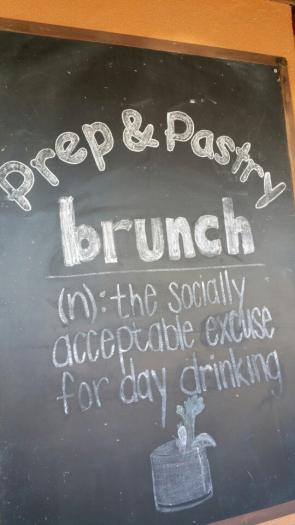 Prep & Pastry
brunch
(n): the socially
acceptable excuse
for day drinking